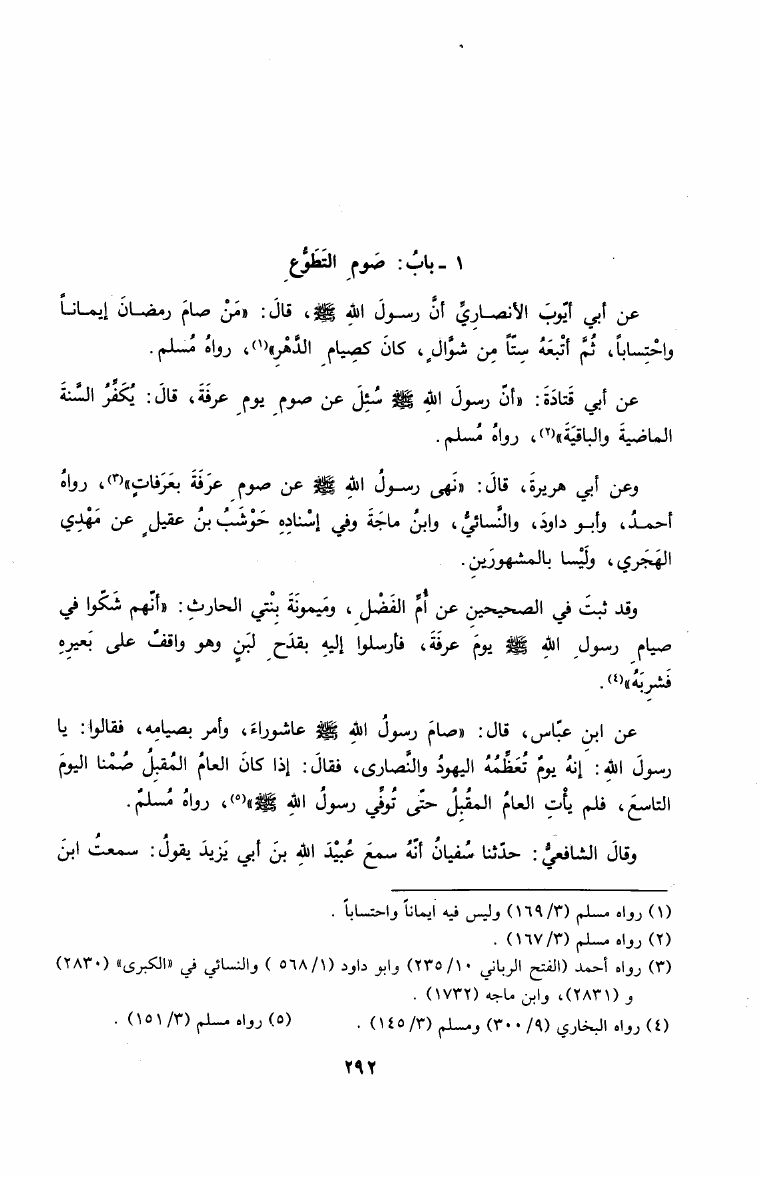 ١ - بابُ: صَومِ التَطَوُّعِ
عن أبي أيّوبَ الأنصاريِّ أنَّ رسولَ اللهِ ﷺ، قالَ: «مَنْ صامَ رمضانَ إيماناً
واحْتِساباً، ثُمَّ أتْبعَهُ سِتّاً مِن شوَّالٍ، كانَ كصِيامِ الدَّهْرِ»(١)، رواهُ مُسلم.
عن أبي قَتادَةَ: «أنّ رسولَ اللهِ ﷺ سُئِلَ عن صومِ يومِ عرفَةَ، قالَ: يُكَفِّرُ السَّنةَ
الماضيةَ والباقيَةَ»(٢)، رواهُ مُسلم.
وعن أبي هريرةَ، قالَ: «نَهى رسولُ اللهِ ﷺ عن صومِ عرَفَةَ بعَرَفاتٍ»(٣)، رواهُ
أحمدُ، وأبو داودَ، والنَّسائيُّ، وابنُ ماجَةَ وفي إسْنادِهِ حَوْشَبُ بنُ عقيلٍ عن مَهْدِي
الهَجَري، ولَيْسا بالمشهورَينِ.
وقد ثبتَ في الصحيحينِ عن أُمِّ الفَضْلِ، ومَيمونَةَ بِنْتي الحارثِ: «أنّهم شَكّوا في
صيامِ رسولِ اللهِ ﷺ يومَ عرفَةَ، فأرسلوا إليهِ بقدَحِ لبَنٍ وهو واقفٌ على بَعيرِهِ
فَشربَهُ»(٤).
عن ابنِ عبّاس، قال: «صامَ رسولُ اللهِ ﷺ عاشوراءَ، وأمر بصيامِه، فقالوا: يا
رسولَ اللهِ: إنهُ يومٌ تُعَظِّمُهُ اليهودُ والنَّصارى، فقالَ: إذا كانَ العامُ المُقبلُ صُمْنا اليومَ
التاسعَ، فلم يأْتِ العامُ المقْبلُ حتّى تُوفِّي رسولُ اللهِ ﷺ»(٥)، رواهُ مُسلمٌ.
وقالَ الشافعيُّ: حدّثنا سُفيانُ أنّهُ سمعَ عُبَيْدَ اللهِ بنَ أبي يَزيدَ يقولُ: سمعتُ ابنَ
(١) رواه مسلم (١٦٩/٣) وليس فيه ايماناً واحتساباً .
(٢) رواه مسلم (١٦٧/٣) .
(٣) رواه أحمد (الفتح الرباني ٢٣٥/١٠) وابو داود (٥٦٨/١ ) والنسائي في «الكبرى» (٢٨٣٠)
و (٢٨٣١)، وابن ماجه (١٧٣٢) .
(٤) رواه البخاري (٣٠٠/٩) ومسلم (١٤٥/٣) . (٥) رواه مسلم (١٥١/٣) .
٢٩٢